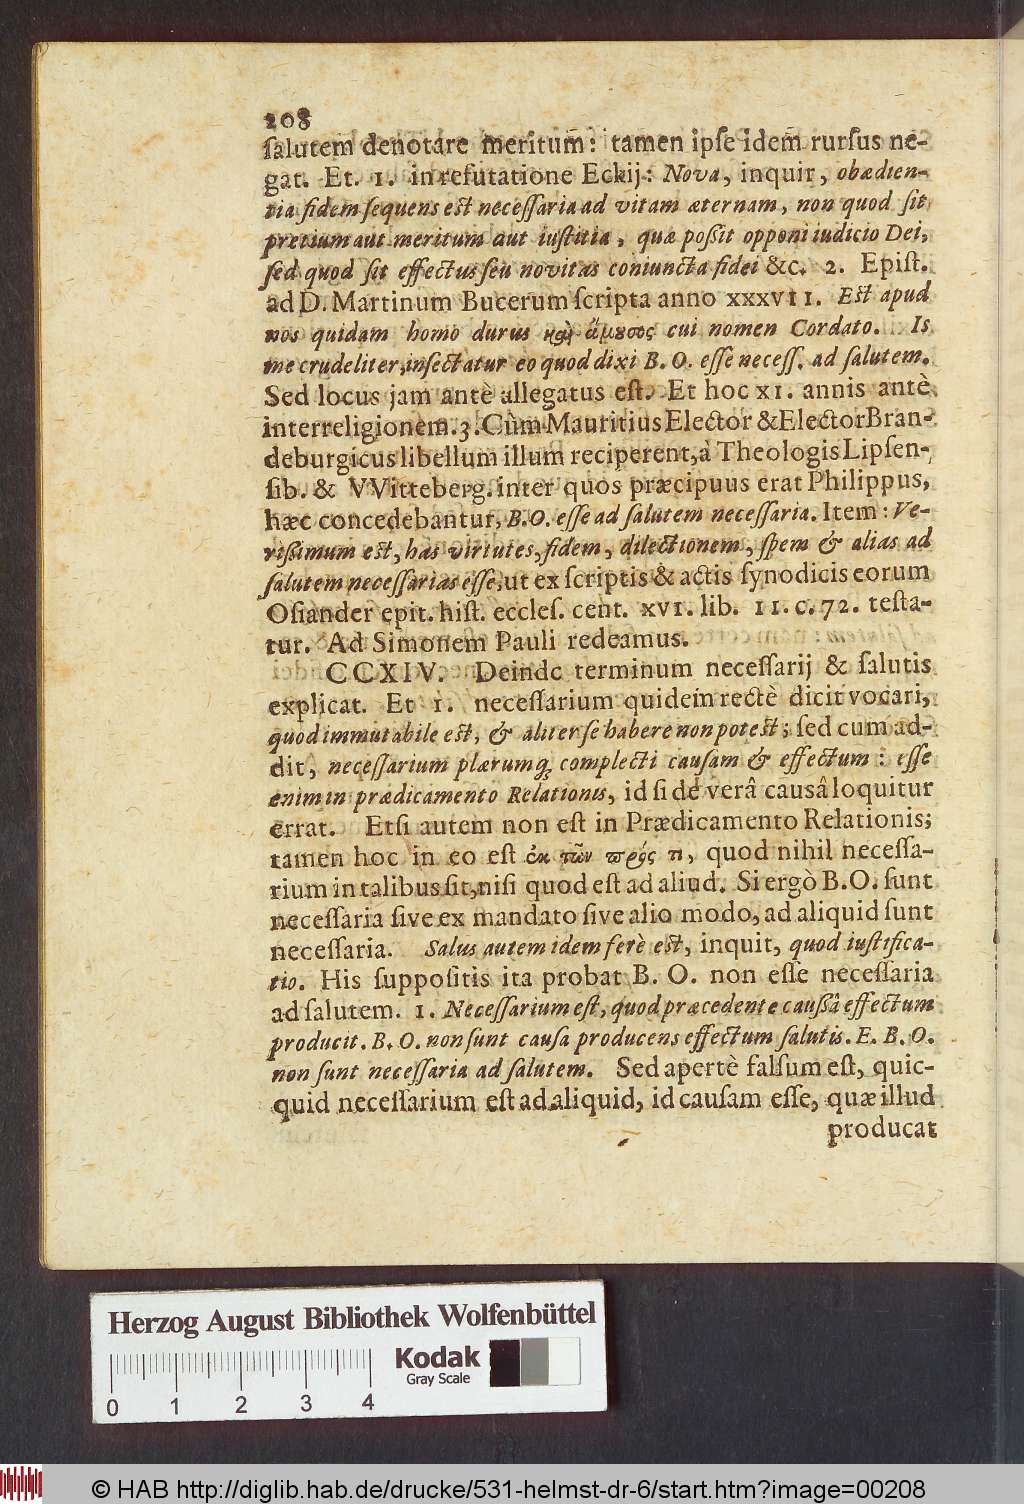 208
ſalutem denotare meritum̃: tamen ipſe idem̃ rurſus ne-
gat. Et. 1. in refutatione Eckij: Nova, inquit, obædien-
tia fidem ſequens est neceſſaria ad vitam æternam, non quod ſit
pretium aut meritum aut iuſtitia, quæ poßit opponi iudicio Dei,
ſed quod ſit effectus ſeu novitas coniuncta fidei &c. 2. Epiſt.
ad D. Martinum Bucerum ſcripta anno XXXVII. Est apud
nos quidam homo durus καὶ ἄμουσος cui nomen Cordato. Is
me crudeliter inſectatur eo quod dixi B. O. eſſe neceſſ. ad ſalutem.
Sed locus jam antè allegatus eſt. Et hoc XI. annis antè
interreligionem. 3. Cùm Mauritius Elector & Elector Bran-
deburgicus libellum illum reciperent, à Theologis Lipſen-
ſib. & VVitteberg. inter quos præcipuus erat Philippus,
hæc concedebantur, B.O. eſſe ad ſalutem neceſſaria. Item: Ve-
rißimum est, has virtutes, fidem, dilectionem, ſpem & alias ad
ſalutem neceſſarias eſſe, ut ex ſcriptis & actis ſynodicis eorum
Oſiander epit. hiſt. eccleſ. cent. XVI. lib. II. c. 72. teſta-
tur. Ad Simonem Pauli redeamus.
CCXIV. Deinde terminum neceſſarij & ſalutis
explicat. Et 1. neceſſarium quidem rectè dicit vocari,
quod immutabile est, & aliter ſe habere non potest; ſed cum ad-
dit, neceſſarium plærumq; complecti cauſam & effectum: eſſe
enim in prædicamento Relationis, id ſi de verâ causâ loquitur
errat. Etſi autem non eſt in Prædicamento Relationis;
tamen hoc in eo eſt ἐκ τῶν πρός τι, quod nihil neceſſa-
rium in talibus ſit, niſi quod eſt ad aliud. Si ergò B.O. ſunt
neceſſaria ſive ex mandato ſive alio modo, ad aliquid ſunt
neceſſaria. Salus autem idem ferè est, inquit, quod iuſtifica-
tio. His ſuppoſitis ita probat B. O. non eſſe neceſſaria
ad ſalutem. 1. Neceſſarium eſt, quod præcedente cauſſâ effectum
producit. B. O. non ſunt cauſa producens effectum ſalutis. E. B. O.
non ſunt neceſſaria ad ſalutem. Sed apertè falſum eſt, quic-
quid neceſſarium eſt ad aliquid, id cauſam eſſe, quæ illud
producat
Herzog August Bibliothek Wolfenbüttel
Kodak
Gray Scale
0 1 2 3 4
© HAB http://diglib.hab.de/drucke/531-helmst-dr-6/start.htm?image=00208